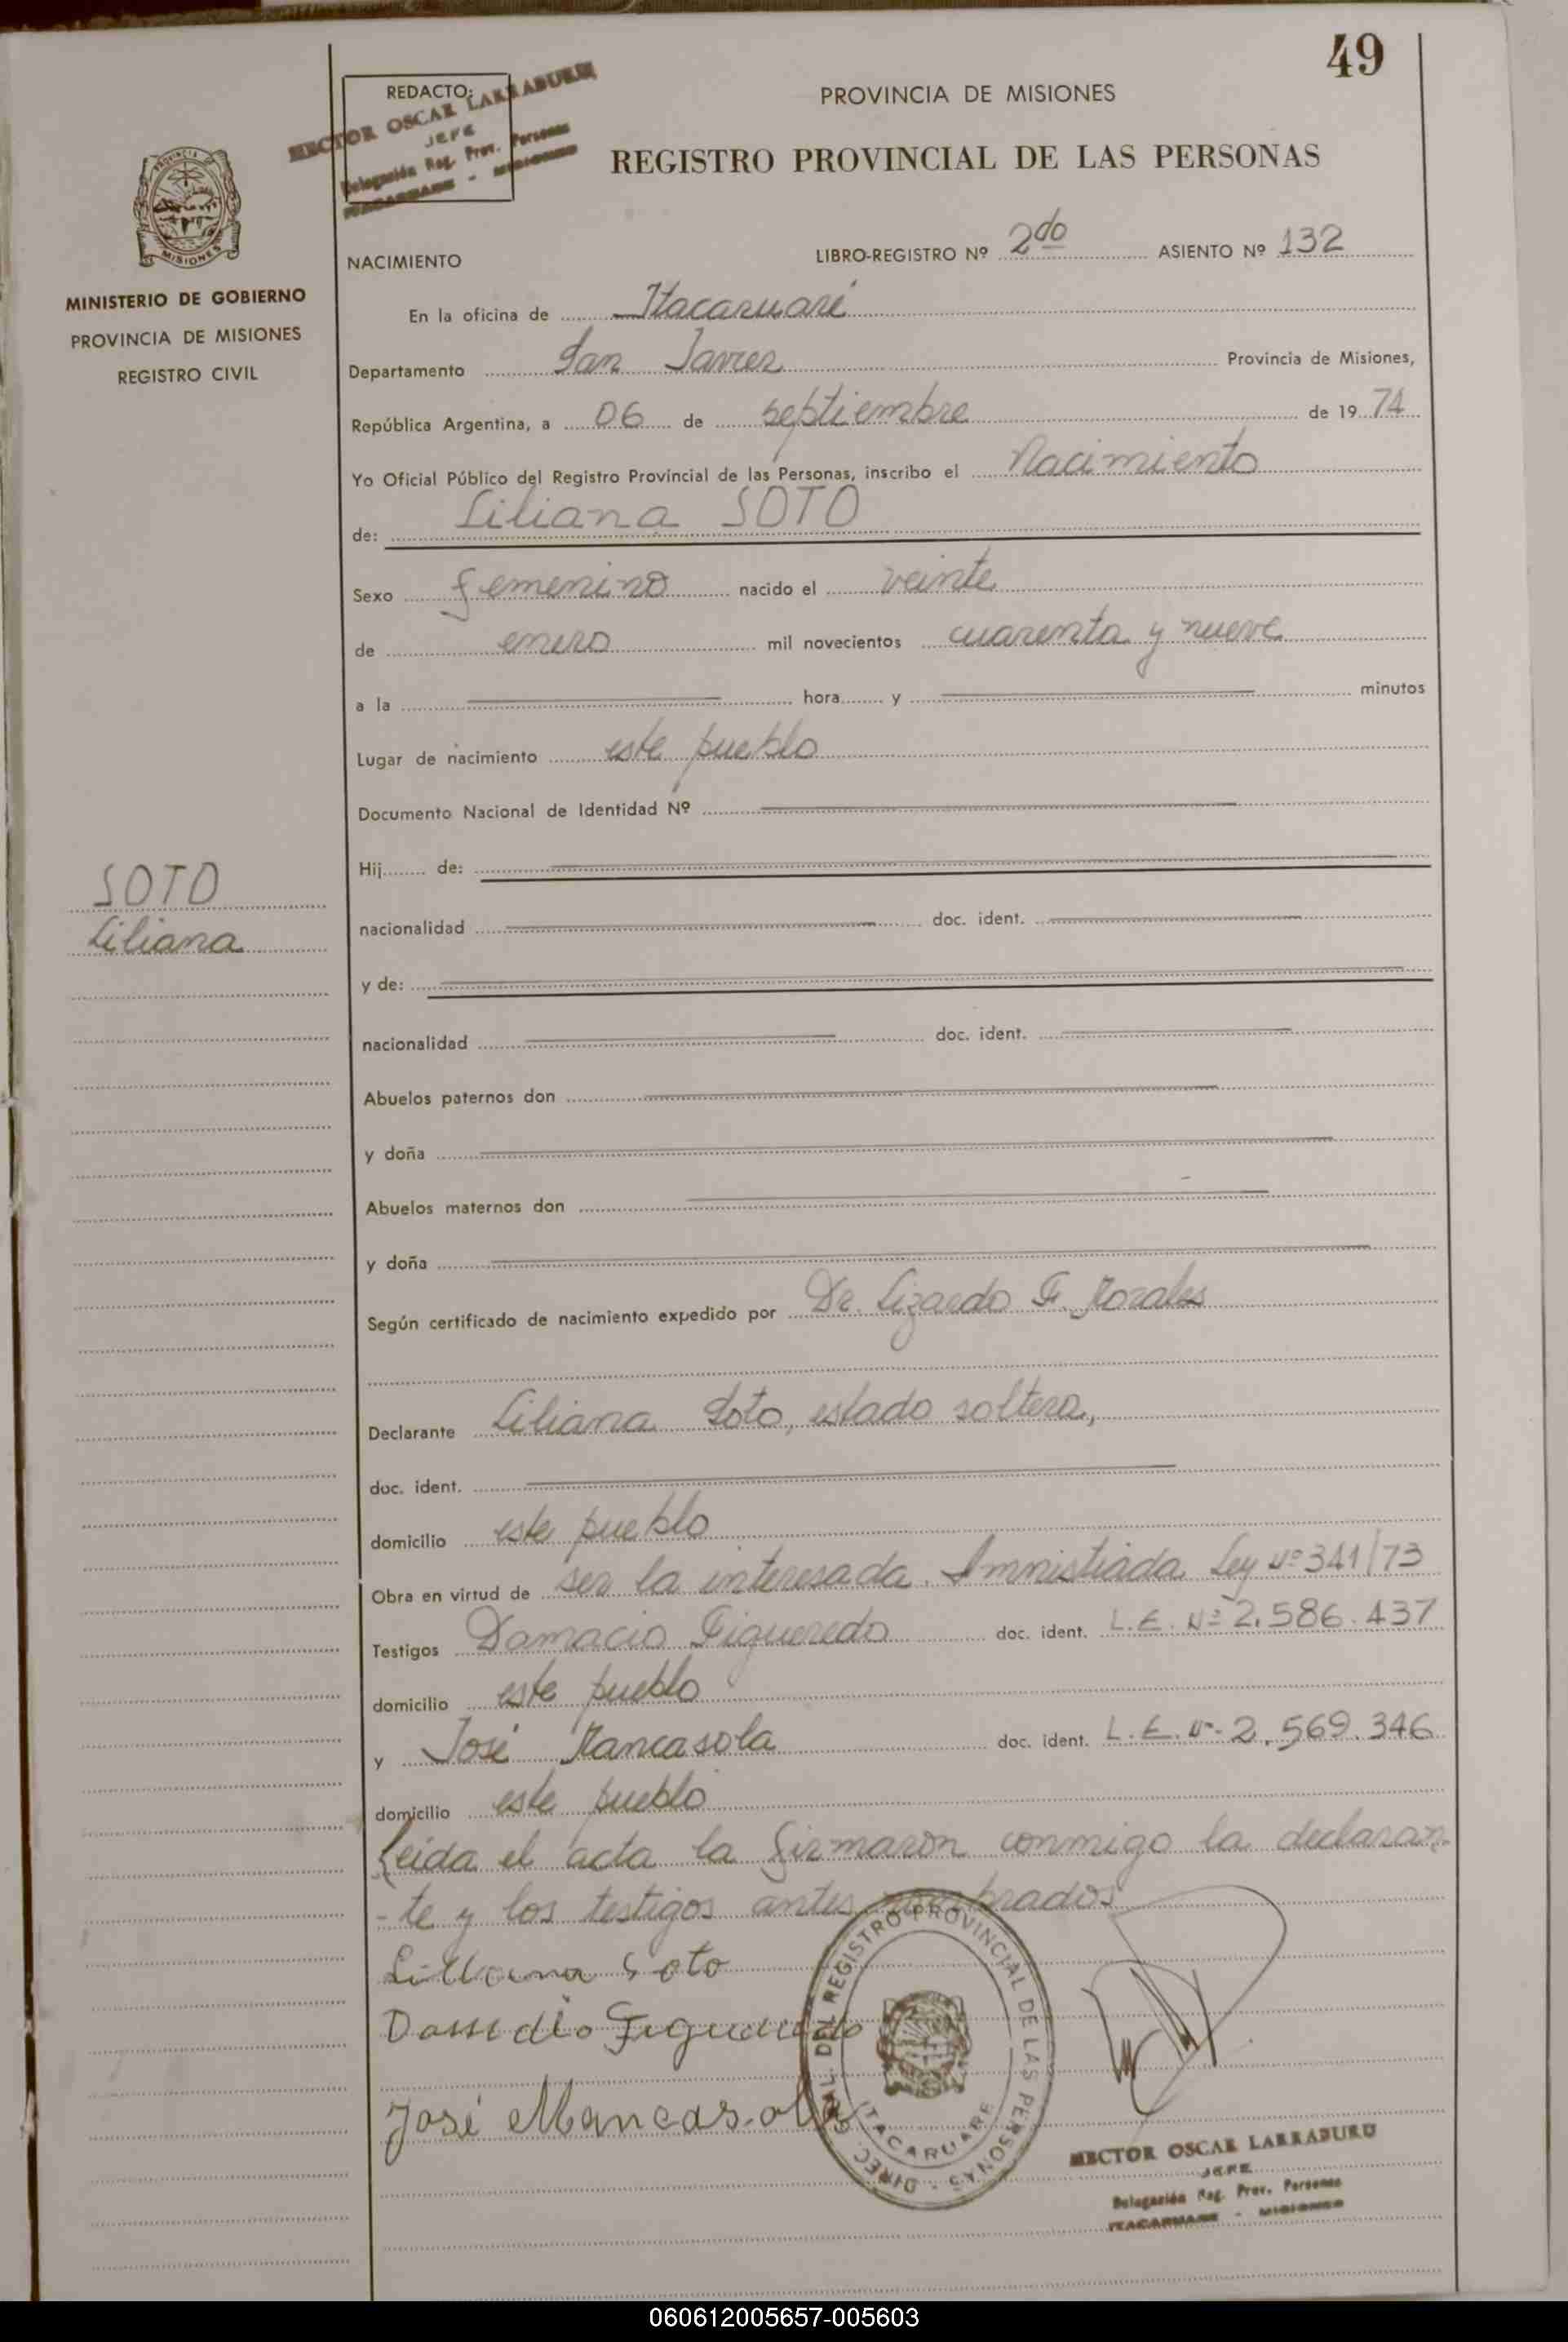 49
REDACTO:
HECTOR OSCAR LARRABURU
JEFE
Delegación Reg. Prov. Personas
ITACARUARE - MISIONES
PROVINCIA DE MISIONES
REGISTRO PROVINCIAL DE LAS PERSONAS
PROVINCIA DE
MISIONES
MINISTERIO DE GOBIERNO
PROVINCIA DE MISIONES
REGISTRO CIVIL
NACIMIENTO LIBRO-REGISTRO Nº 2do ASIENTO Nº 132
En la oficina de Itacaruaré
Departamento San Javier Provincia de Misiones,
República Argentina, a 06 de septiembre de 19 74
Yo Oficial Público del Registro Provincial de las Personas, inscribo el Nacimiento
de: Liliana SOTO
Sexo femenino nacido el veinte
de enero mil novecientos cuarenta y nueve
a la hora y minutos
Lugar de nacimiento este pueblo
Documento Nacional de Identidad Nº
Hij de:
SOTO
Liliana
nacionalidad doc. ident.
y de:
nacionalidad doc. ident.
Abuelos paternos don
y doña
Abuelos maternos don
y doña
Según certificado de nacimiento expedido por Dr. Lizardo F. Rozales
Declarante Liliana Soto, estado soltera,
doc. ident.
domicilio este pueblo
Obra en virtud de ser la interesada. Amnistiada Ley Nº 341/73
Testigos Damacio Figueredo doc. ident. L.E. Nº 2.586.437
domicilio este pueblo
y José Mancasola doc. ident. L.E. Nº 2.569.346
domicilio este pueblo
Leída el acta la firmaron conmigo la declaran-
-te y los testigos antes nombrados
Liliana Soto
Figueredo
José Mancasola
DIREC. GRAL. DEL REGISTRO PROVINCIAL DE LAS PERSONAS
ITACARUARE
HECTOR OSCAR LARRABURU
JEFE
Delegación Reg. Prov. Personas
ITACARUARE - MISIONES
060612005657-005603